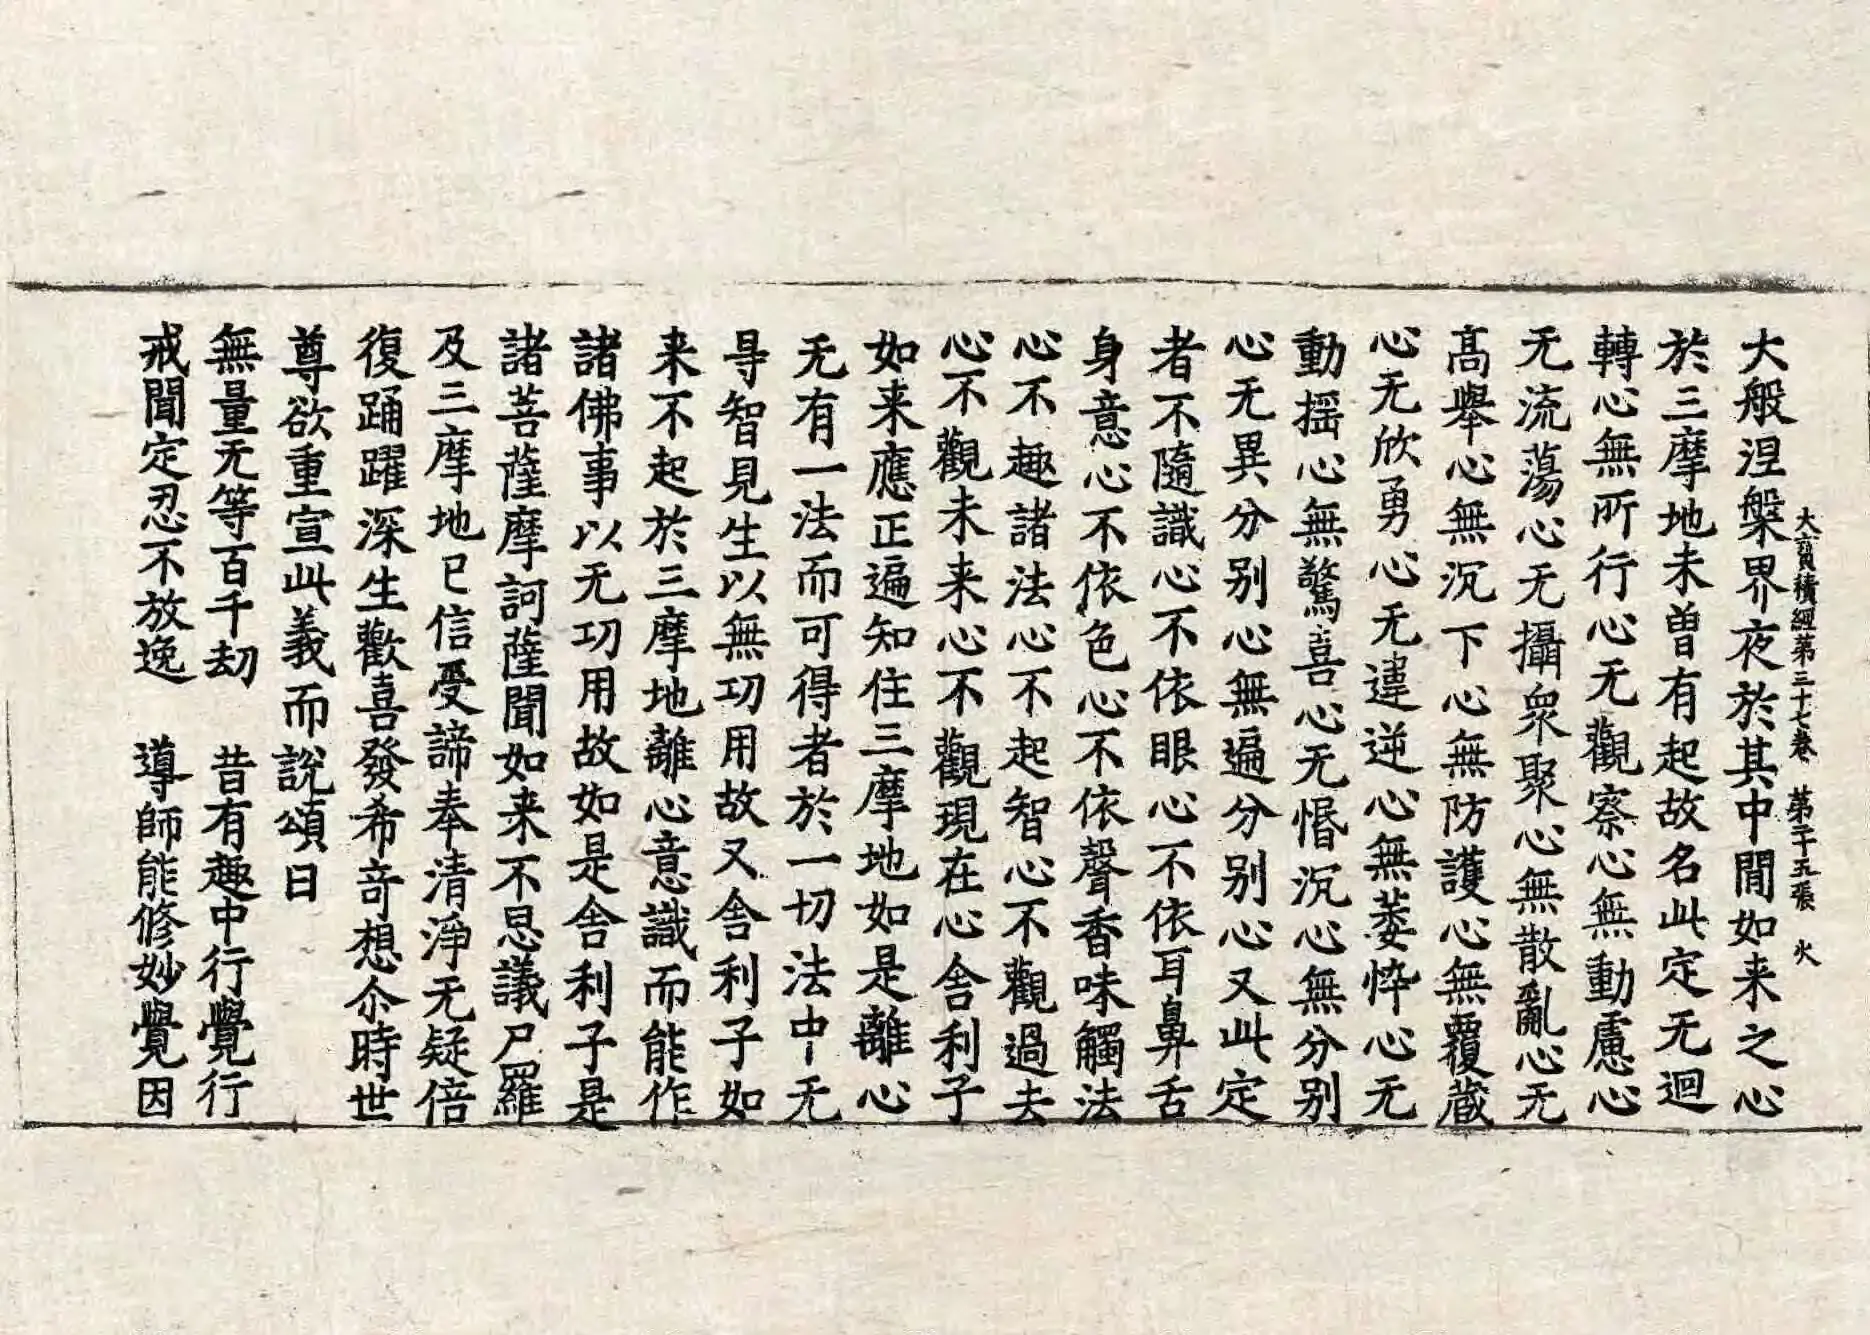 大寶積經第三十七卷　第十五張　火
大般涅槃界夜於其中閒如来之心
於三摩地未曽有起故名此定无迴
轉心無所行心无觀察心無動慮心
无流蕩心无攝衆聚心無散亂心无
髙舉心無沉下心無防護心無覆蔵
心无欣勇心无違逆心無萎悴心无
動揺心無驚喜心无惛沉心無分别
心无異分别心無遍分别心又此定
者不隨識心不依眼心不依耳鼻舌
身意心不依色心不依聲香味觸法
心不趣諸法心不起智心不觀過去
心不觀未来心不觀現在心舎利子
如来應正遍知住三摩地如是離心
无有一法而可得者於一切法中无
㝵智見生以無功用故又舎利子如
来不起於三摩地離心意識而能作
諸佛事以无功用故如是舎利子是
諸菩薩摩訶薩聞如来不思議尸羅
及三摩地已信受諦奉清淨无疑倍
復踊躍深生歡喜發希竒想尒時世
尊欲重宣此義而說頌曰
無量无等百千劫　昔有趣中行覺行
戒聞定忍不放逸　導師能修妙覺因